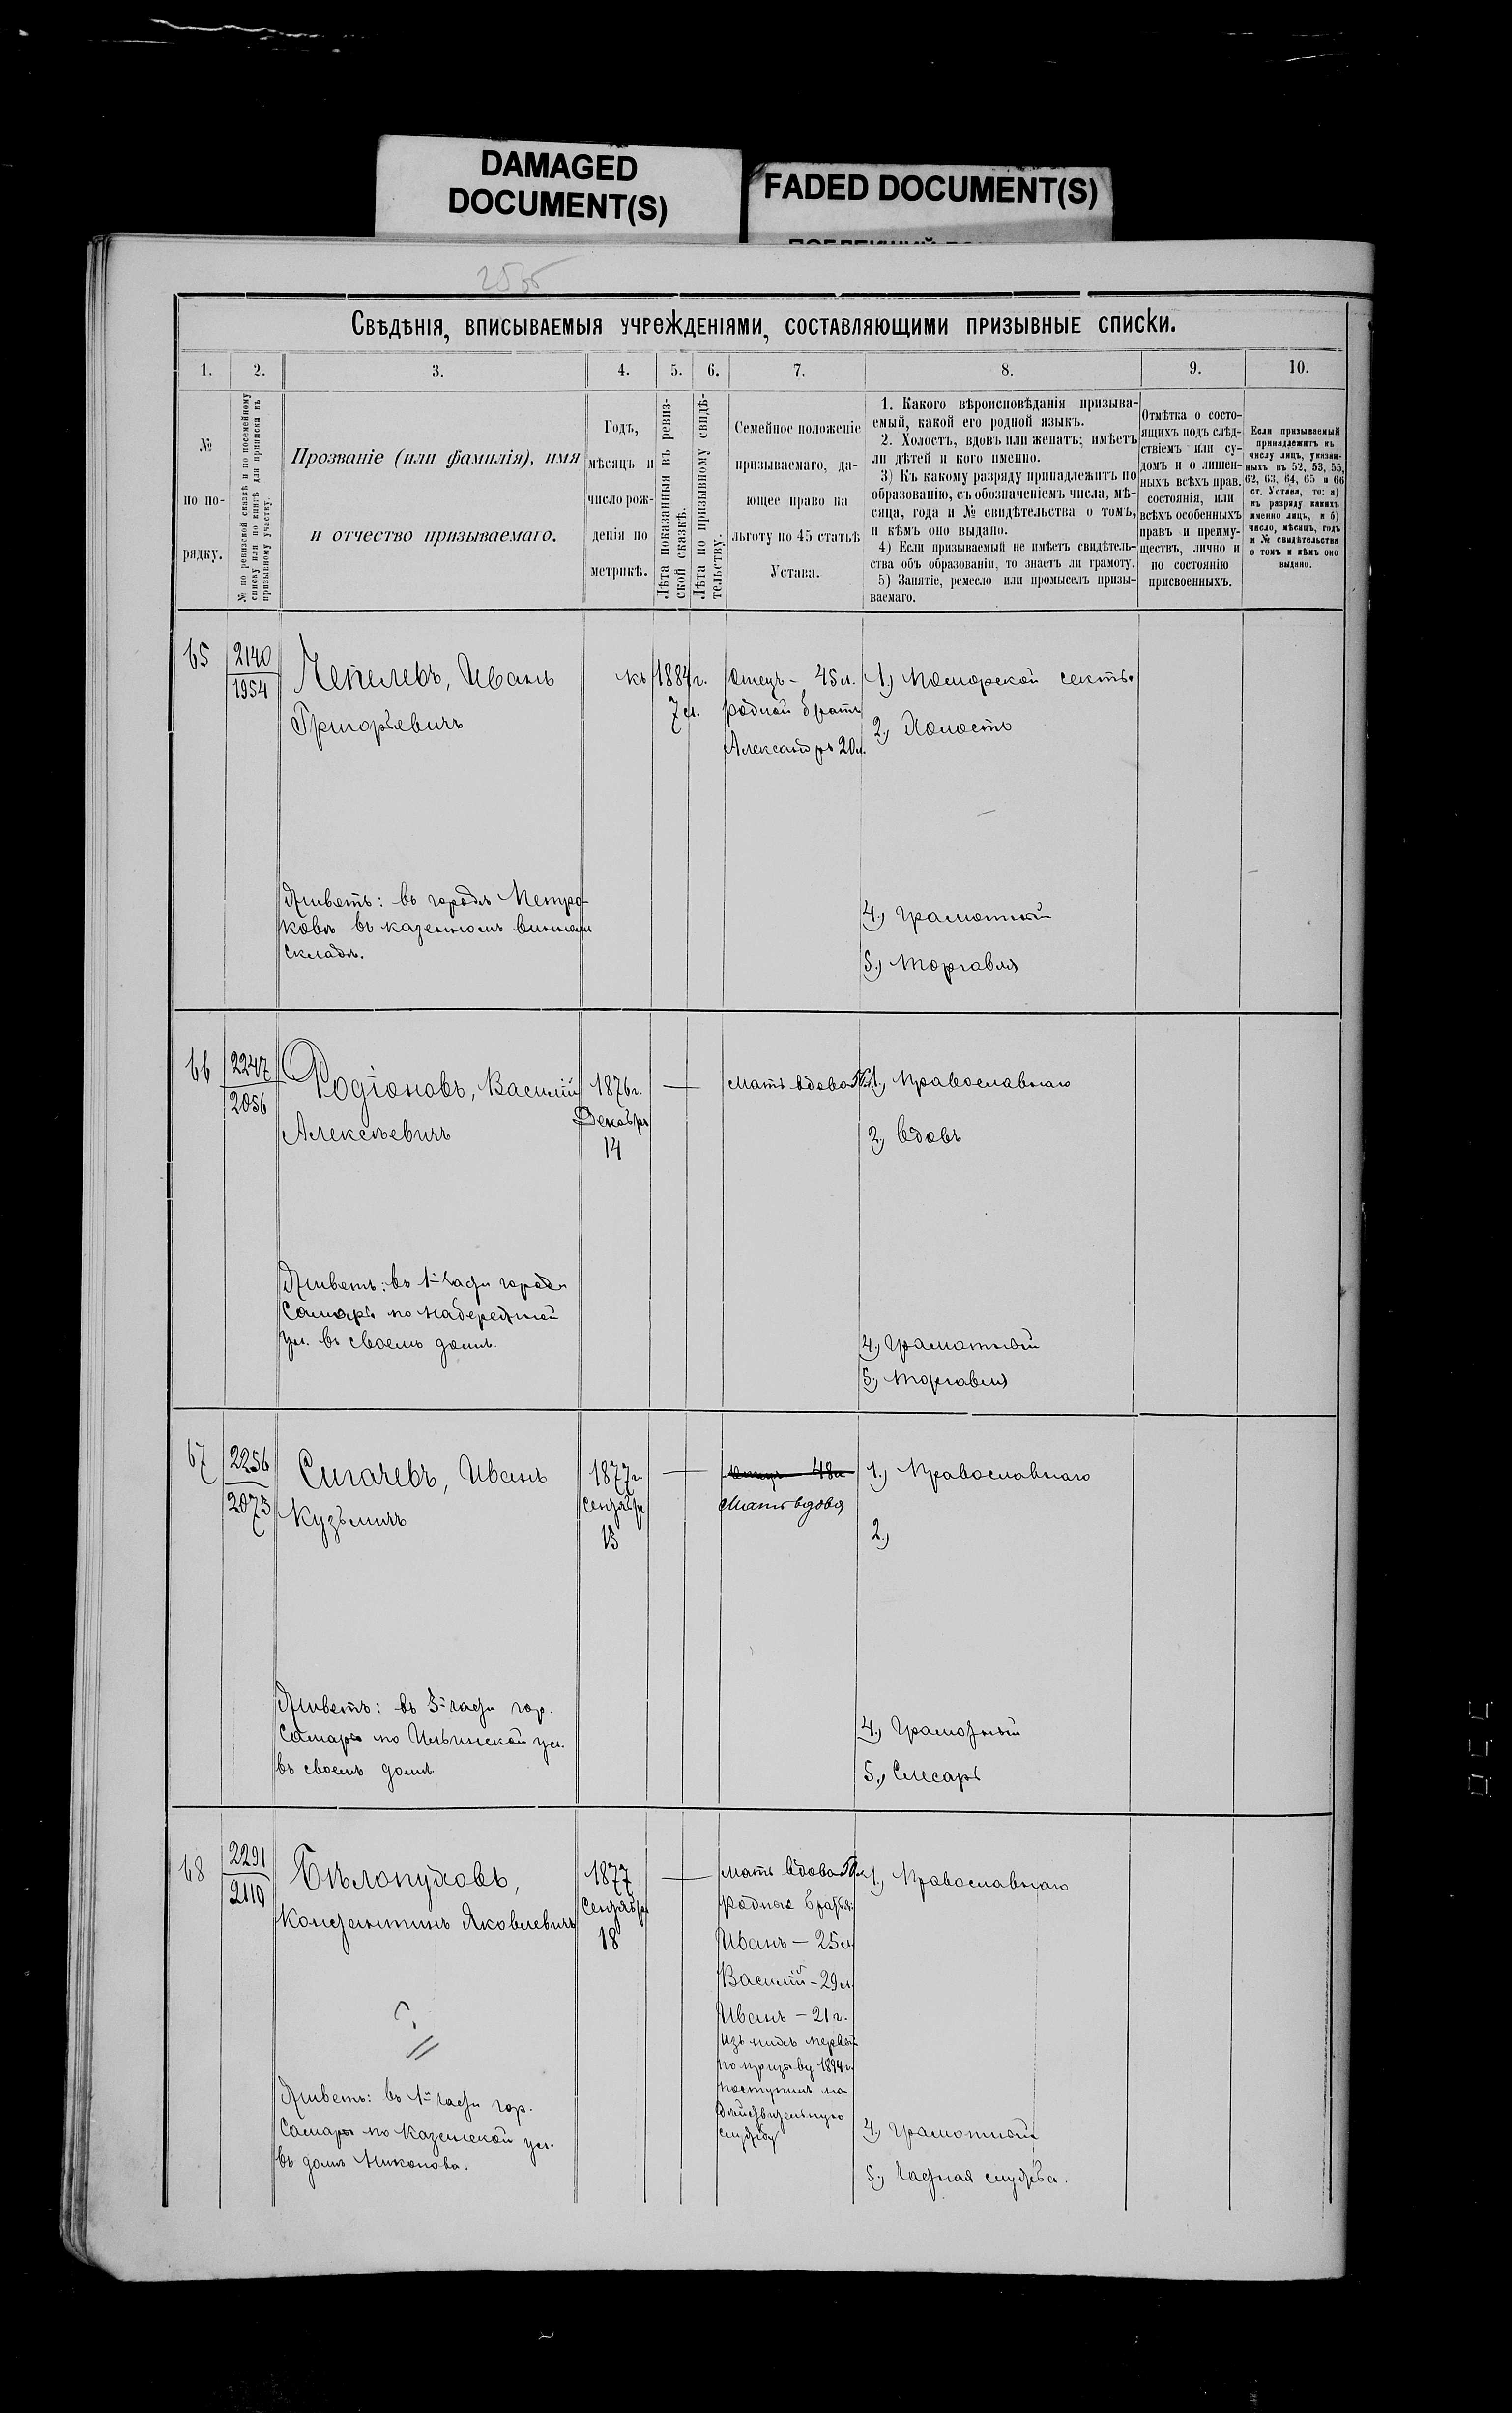 DAMAGED
DOCUMENT(S)
FADED DOCUMENT(S)
Свѣдѣнія, вписываемыя учрежденіями, составляющими призывные списки.
1. 2. 3. 4. 5. 6. 7. 8. 9. 10.
№
по по-
рядку.
№ по ревизской сказкѣ и по посемейному
списку или по книгѣ для приписки къ
призывному участку.
Прозваніе (или фамилія), имя
и отчество призываемаго.
Годъ,
мѣсяцъ и
число рож-
денія по
метрикѣ.
Лѣта показанныя въ ревиз-
ской сказкѣ.
Лѣта по призывному свидѣ-
тельству.
Семейное положеніе
призываемаго, да-
ющее право на
льготу по 45 статьѣ
Устава.
1. Какого вѣроисповѣданія призыва-
емый, какой его родной языкъ.
2. Холостъ, вдовъ или женатъ; имѣетъ
ли дѣтей и кого именно.
3) Къ какому разряду принадлежитъ по
образованію, съ обозначеніемъ числа, мѣ-
сяца, года и № свидѣтельства о томъ,
и кѣмъ оно выдано.
4) Если призываемый не имѣетъ свидѣтель-
ства объ образованіи, то знаетъ ли грамоту.
5) Занятіе, ремесло или промыселъ призы-
ваемаго.
Отмѣтка о состо-
ящихъ подъ слѣд-
ствіемъ или су-
домъ и о лишен-
ныхъ всѣхъ прав.
состоянія, или
всѣхъ особенныхъ
правъ и преиму-
ществъ, лично и
по состоянію
присвоенныхъ.
Если призываемый
принадлежитъ къ
числу лицъ, указан-
ныхъ въ 52, 53, 55,
62, 63, 64, 65 и 66
ст. Устава, то: а)
къ разряду какихъ
именно лицъ, и б)
число, мѣсяцъ, годъ
и № свидѣтельства
о томъ и кѣмъ оно
выдано.
65
2140
1954
Чепелевъ, Иванъ
Григорьевичъ
къ 1884 г.
7 л.
Отецъ - 45 л.
родной братъ
Александръ 20 л.
1.) Поморской секты
2.) Холостъ
Живетъ: въ городѣ Петро-
ковѣ въ казенномъ винномъ
складѣ.
4.) грамотный
5.) торговля
66
2247
2056
Родіоновъ, Василій
Алексѣевичъ
1876 г.
Декабря
14
Мать вдова
1.) Православнаго
2.) вдовъ
Живетъ: въ 1й части города
Самары по набережной
ул. въ своемъ домѣ.
4.) грамотный
5.) торговля
67
2256
2073
Сигачевъ, Иванъ
Кузьмичъ
1877 г.
Сентября
13
48 л.
Мать вдова
1.) Православнаго
2.)
Живетъ: въ 3й части гор.
Самары по Ильинской ул.
въ своемъ домѣ
4.) грамотный
5.) Слесарь
68
2291
2110
Бѣлопуховъ,
Константинъ Яковлевичъ
1877
Сентября
18
Мать вдова 50 л.
Родные братья:
Иванъ — 25 л.
Василій - 29 л.
Иванъ — 21 г.
Изъ нихъ первый
по призыву 1894 г.
поступилъ на
дѣйствительную
службу
1.) Православнаго
Живетъ: въ 1й части гор.
Самары по Казанской ул.
въ домѣ Никонова.
4.) грамотный
5.) Частная служба.